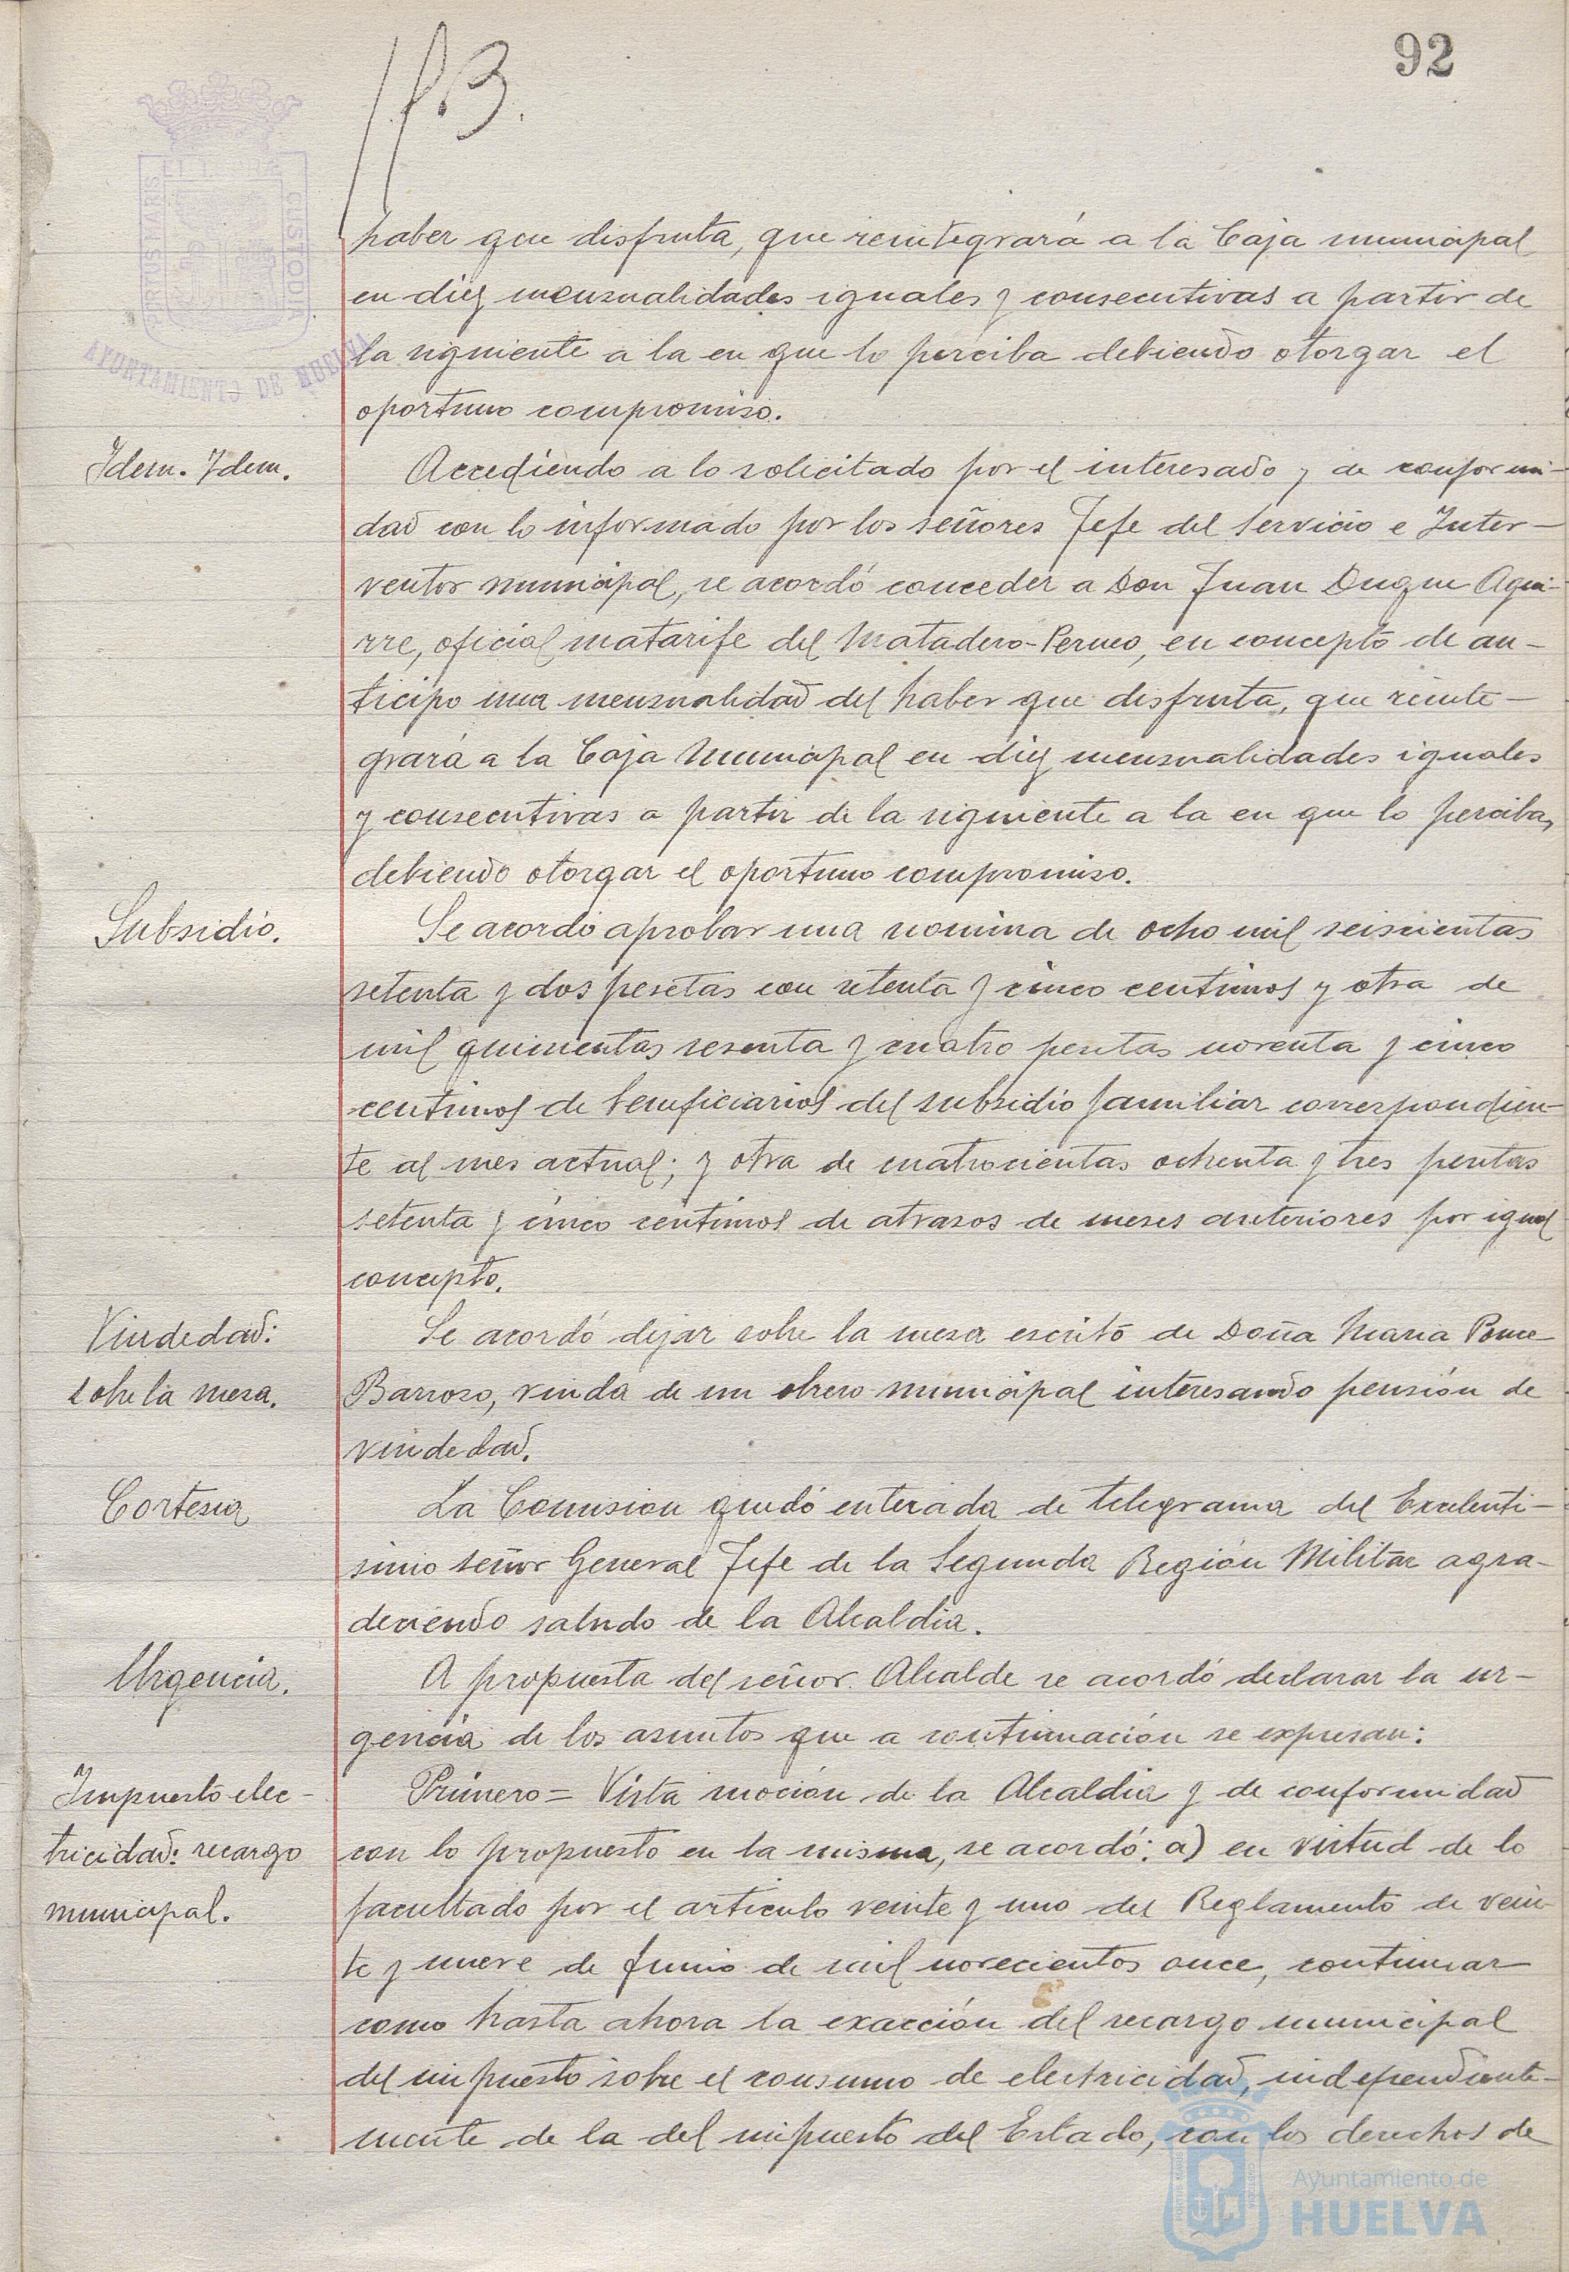 92
haber que disfruta, que reintegrará a la Caja municipal
en diez mensualidades iguales y consecutivas a partir de
la siguiente a la en que lo perciba debiendo otorgar el
oportuno compromiso.
Idem. Idem.
Accediendo a lo solicitado por el interesado y de conformi-
dad con lo informado por los señores Jefe del Servicio e Inter-
ventor municipal, se acordó conceder a Don Juan Duque Agui-
rre, oficial matarife del Matadero-Perneo, en concepto de an-
ticipo una mensualidad del haber que disfruta, que reinte-
grará a la Caja Municipal en diez mensualidades iguales
y consecutivas a partir de la siguiente a la en que lo perciba,
debiendo otorgar el oportuno compromiso.
Subsidio.
Se acordó aprobar una nomina de ocho mil seiscientas
setenta y dos pesetas con setenta y cinco centimos y otra de
mil quinientas sesenta y cuatro pesetas noventa y cinco
centimos de beneficiarios del subsidio familiar correspondien-
te al mes actual; y otra de cuatrocientas ochenta y tres pesetas
setenta y cinco centimos de atrasos de meses anteriores por igual
concepto.
Viudedad:
sobre la mesa.
Se acordó dejar sobre la mesa escrito de Doña Maria Ponce
Barroso, viuda de un obrero municipal interesando pensión de
viudedad.
Cortesia
La Comision quedó enterada de telegrama del Excelenti-
simo señor General Jefe de la Segunda Región Militar agra-
deciendo saludo de la Alcaldia.
Urgencia.
A propuesta del señor Alcalde se acordó declarar la ur-
gencia de los asuntos que a continuación se expresan:
Impuesto elec-
tricidad: recargo
municipal.
Primero= Vista moción de la Alcaldia y de conformidad
con lo propuesto en la misma, se acordó: a) en virtud de lo
facultado por el articulo veinte y uno del Reglamento de vein-
te y nueve de Junio de mil novecientos once, continuar
como hasta ahora la exacción del recargo municipal
del impuesto sobre el consumo de electricidad, independiente-
mente de la del impuesto del Estado, con los derechos de
PORTUS MARIS
CUSTODIA
AYUNTAMIENTO DE HUELVA
Ayuntamiento de
HUELVA